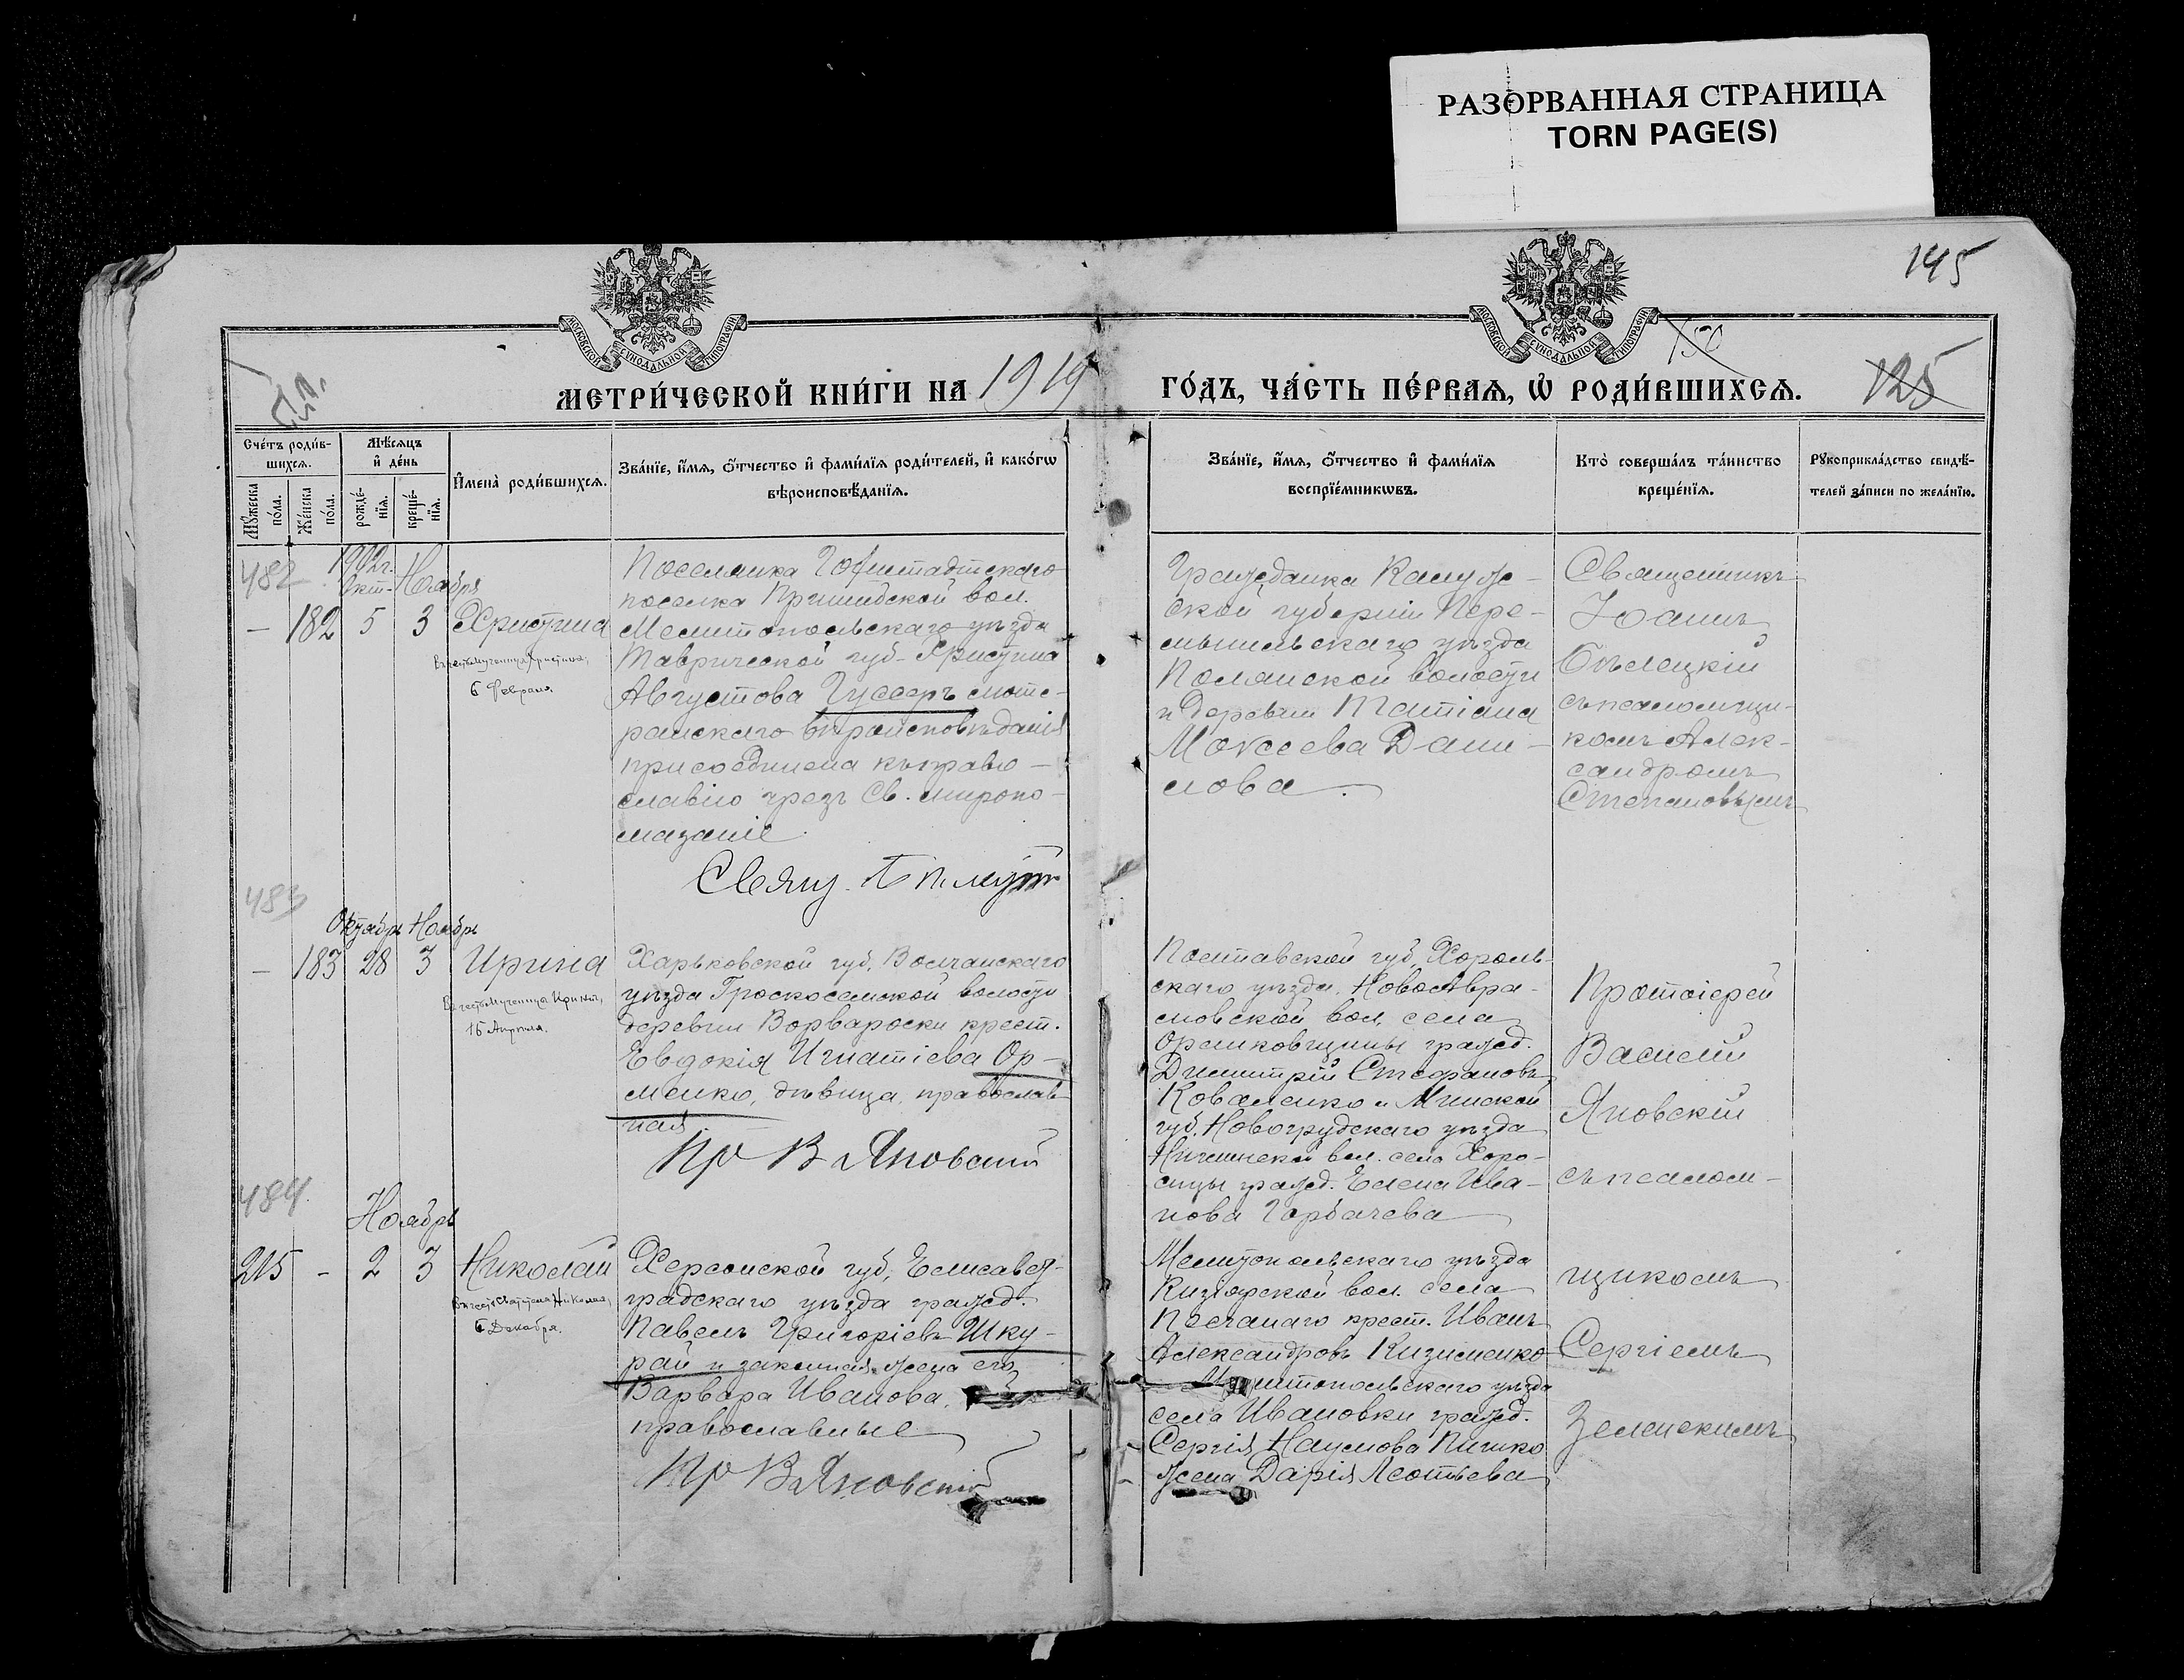 РАЗОРВАННАЯ СТРАНИЦА
TORN PAGE(S)
145
МОСКОВСКОЙ СѴНОДАЛЬНОЙ ТИПОГРАФІИ
МОСКОВСКОЙ СѴНОДАЛЬНОЙ ТИПОГРАФІИ
150
125
МЕТРИ́ЧЕСКОЙ КНИ́ГИ НА 1919
ГО́ДЪ, ЧА́СТЬ ПЕ́РВАѦ, Ѡ҆ РОДИ́ВШИХСѦ.
Сче́тъ роди́в-
шихсѧ.
Мꙋ́жеска
по́ла.
Же́нска
по́ла.
Мѣ́сѧцъ
и҆ де́нь
рожде́-
нїѧ.
креще́-
нїѧ.
И҆мена̀ роди́вшихсѧ.
Зва́нїе, и҆́мѧ, ѻ҆́тчество и҆ фами́лїѧ роди́телей, и҆ како́гѡ
вѣроисповѣ́данїѧ.
Зва́нїе, и҆́мѧ, ѻ҆́тчество и҆ фами́лїѧ
воспрїе́мникѡвъ.
Кто̀ соверша́лъ та́инство
креще́нїѧ.
Рꙋкоприкла́дство свидѣ́-
телей за́писи по жела́нїю.
482
1902г.
Окт- Ноябрь
— 182 5 3 Христина
Въ честь мученицы Христины,
6 Февраля.
Поселянка Гофштадтскаго
поселка Пришибской вол.
Мелитопольскаго уѣзда
Таврической губ. Христина
Августова Гуссеръ люте-
ранскаго вѣроисповѣданія
присоединена къ право-
славію чрезъ Св. миропо-
мазаніе
Свящ.
Гражданка Калуж-
ской губерніи Пере-
мышльскаго уѣзда
Полянской волости
и деревни Татіана
Моисеева Дани-
лова.
Священникъ
Іоаннъ
Бѣлецкій
съ псаломщи-
комъ Алек-
сандромъ
Степановымъ
483
Октябрь Ноябрь
— 183 28 3 Ирина
Въ честь Мученицы Ирины,
16 Апрѣля.
Харьковской губ. Волчанскаго
уѣзда волости
деревни крест.
Евдокія Игнатіева Ор-
ленко, дѣвица, православ-
ная
Пр В Яновскій
Полтавской губ. Хороль-
скаго уѣзда, Новоавра-
мовской вол. села
граж.
Димитрій Стефановъ
Коваленко и Минской
губ. Новогрудскаго уѣзда
вол. села Хоро-
граж. Елена Ива-
нова Горбачева
Протоіерей
Василій
Яновскій
съ псалом-
щикомъ
Сергіемъ
Зеленскимъ
484
Ноябрь
215 - 2 3 Николай
Въ честь Святителя Николая,
6 Декабря.
Херсонской губ, Елисавет-
градскаго уѣзда гражд.
Павелъ Григоріевъ Шку-
рай и законная жена его
Варвара Иванова,
православные
Пр В Яновскій
Мелитопольскаго уѣзда
Кизіярской вол. села
Песчанаго крест. Иванъ
Александровъ Кизименко
Мелитопольскаго уѣзда
села Ивановки гражд.
Сергія Наумова
жена Дарія Леонтьева